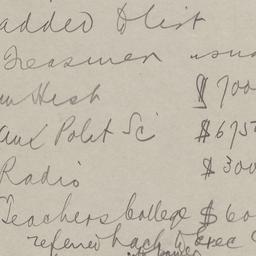 added to list
Treasurer usu
$700
aux Polit Sci $675
Radio $300
Teachers College $60
referred back to Exec